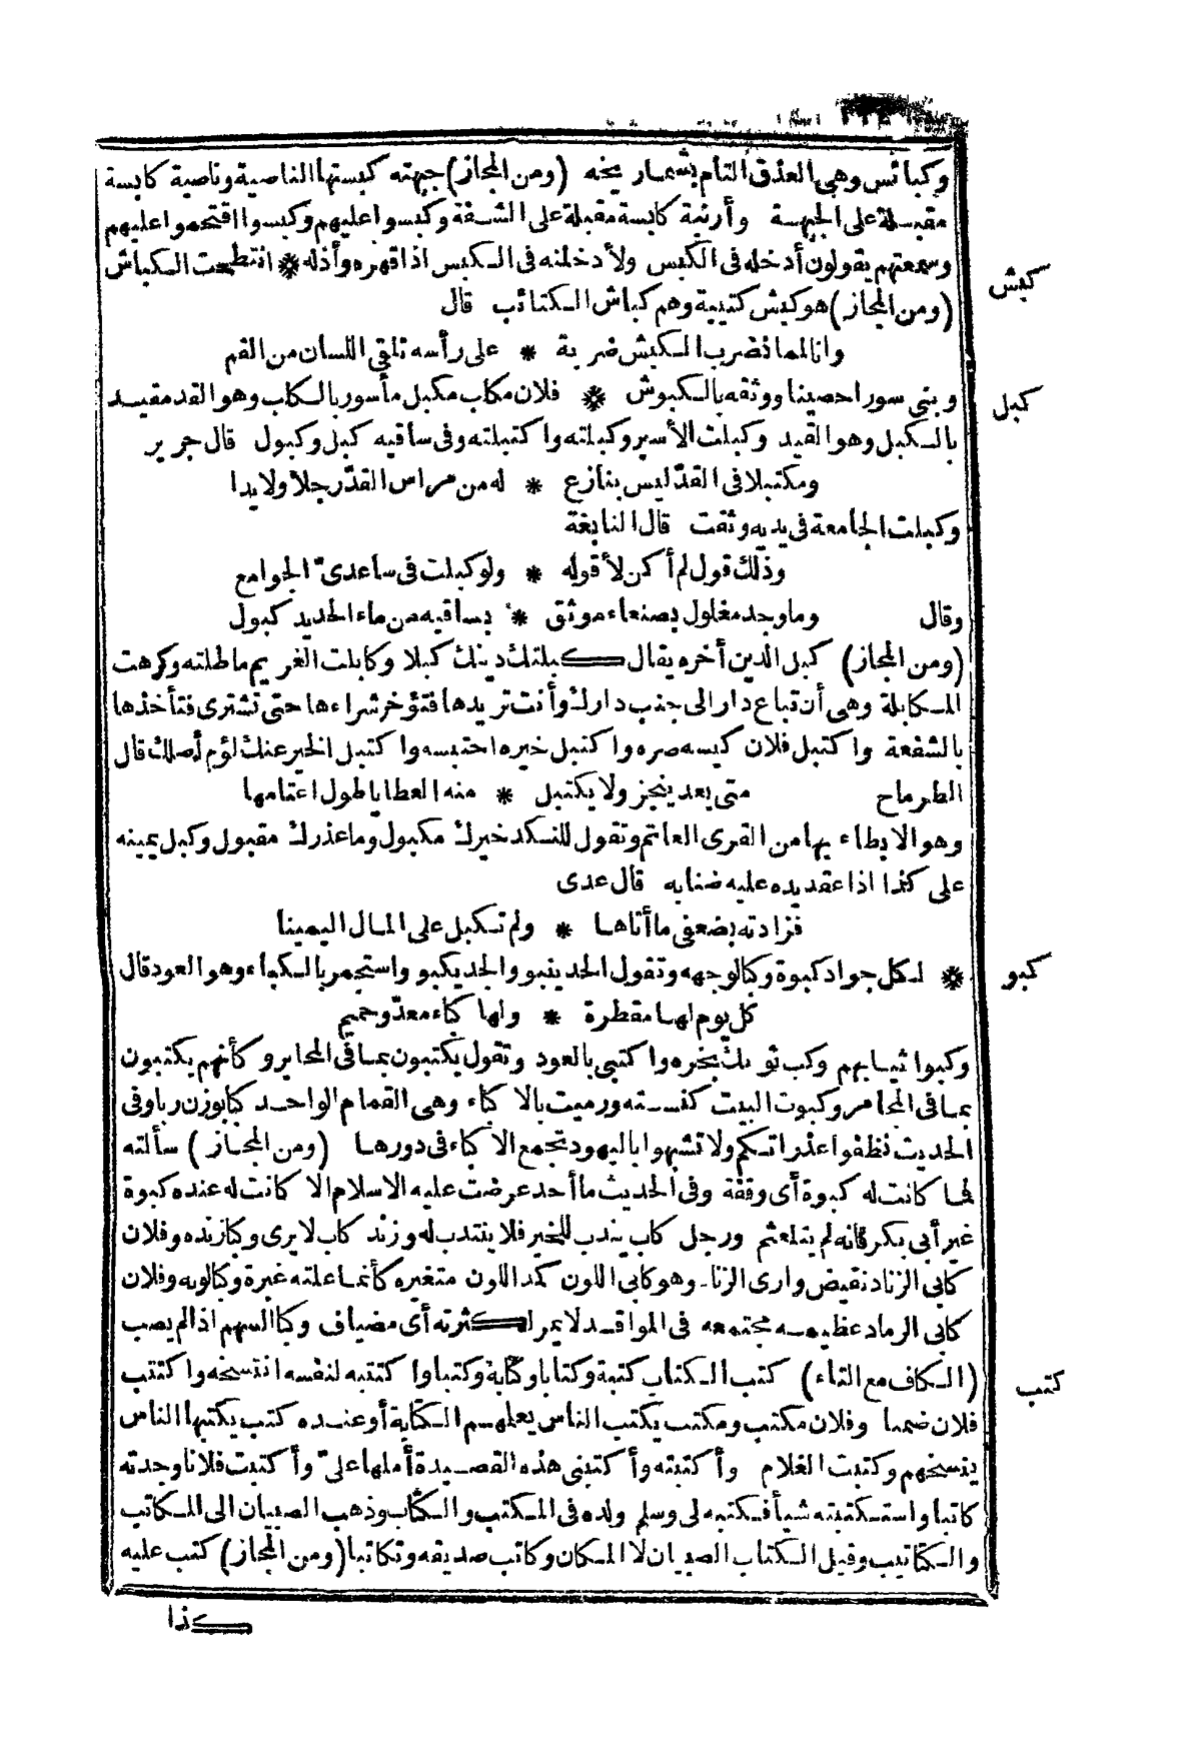 وكبائس وهى العذق التام بشماريخه (ومن المجاز) جبهته كبستها الناصية وناصية كابسة
مقبلة على الجبهة وأرنبة كابسة مقبلة على الشفة وكبسوا عليهم وكبسوا اقتحموا عليهم
وسمعتهم يقولون أدخله فى الكبس ولأدخلنه فى الكبس اذا قهره وأذله * انتطحت الكباش
كبش
(ومن المجاز) هو كبش كتيبة وهم كباش الكتائب قال
وانا لمما نضرب الكبش ضربة * على رأسه تلقى اللسان من الفم
وبنى سورا حصينا ووثقه بالكبوش * فلان مكاب مكبل مأسور بالكاب وهو القد مقيد
كبل
بالكبل وهو القيد وكبلت الأسير وكبلته واكتبلته وفى ساقيه كبل وكبول قال جرير
ومكتبلا فى القدّ ليس بنازع * له من مراس القدّ رجلا ولا يدا
وكبلت الجامعة فى يديه وثقت قال النابغة
وذلك قول لم أكن لأقوله * ولو كبلت فى ساعدىّ الجوامع
وقال وما وجد مغلول بصنعاء موثق * بساقيه من ماء الحديد كبول
(ومن المجاز) كبل الدين أخره يقال كبلتك دينك كبلا وكابلت الغريم ماطلته وكرهت
المكابلة وهى أن تباع دار الى جنب دارك وأنت تريدها فتؤخر شراءها حتى تشترى فتأخذها
بالشفعة واكتبل فلان كيسه صره واكتبل خيره احتبسه واكتبل الخير عنك لؤم أصلك قال
الطرماح متى يعد ينجز ولا يكتبل * منه العطايا طول اعتامها
وهو الابطاء بها من القرى العاتم وتقول للنكد خيرك مكبول وما عذرك مقبول وكبل يمينه
على كذا اذا عقد يده عليه ضنا به قال عدى
فزادته بضعفى ما أتاها * ولم تكبل على المال اليمينا
* لكل جواد كبوة وكبا لوجهه وتقول الحد ينبو والجد يكبو واستجمر بالكباء وهو العود قال
كبو
كل يوم لها مقطرة * ولها كباء معدّ وحميم
وكبوا ثيابهم وكب ثوبك بخره واكتبى بالعود وتقول يكتبون بما فى المحابر وكأنهم يكتبون
بما فى المجامر وكبوت البيت كنسته ورميت بالاكباء وهى القمام الواحد كبا بوزن ربا وفى
الحديث نظفوا عذراتكم ولا تشبهوا باليهود تجمع الاكباء فى دورها (ومن المجاز) سألته
فما كانت له كبوة أى وقفة وفى الحديث ما أحد عرضت عليه الاسلام الا كانت له عنده كبوة
غير أبى بكر فانه لم يتلعثم ورجل كاب يندب للخير فلا ينتدب له وزند كاب لا يرى وكبا زنده وفلان
كابى الزناد نقيض وارى الزناد وهو كابى اللون كمد اللون متغيره كأنما علته غبرة وكبا لونه وفلان
كابى الرماد عظيمه مجتمعه فى المواقد لا يمر لكثرته أى مضياف وكبا السهم اذا لم يصب
(الكاف مع التاء) كتب الكتاب كتبة وكتابا وكتابة وكتبا واكتتبه لنفسه انتسخه واكتتب
كتب
فلان ضمنا وفلان مكتب ومكتب يكتب الناس يعلمهم الكتابة أو عنده كتب يكتبها الناس
ينسخهم وكتبت الغلام وأكتبته وأكتبنى هذه القصيدة أملها علىّ وأكتبت فلانا وجدته
كاتبا واستكتبته شيأ فكتبه لى وسلم ولده فى المكتب والكتاب وذهب الصبيان الى المكاتب
والكتاتيب وقيل الكتاب الصبيان لا المكان وكاتب صديقه وتكاتبا (ومن المجاز) كتب عليه
كذا